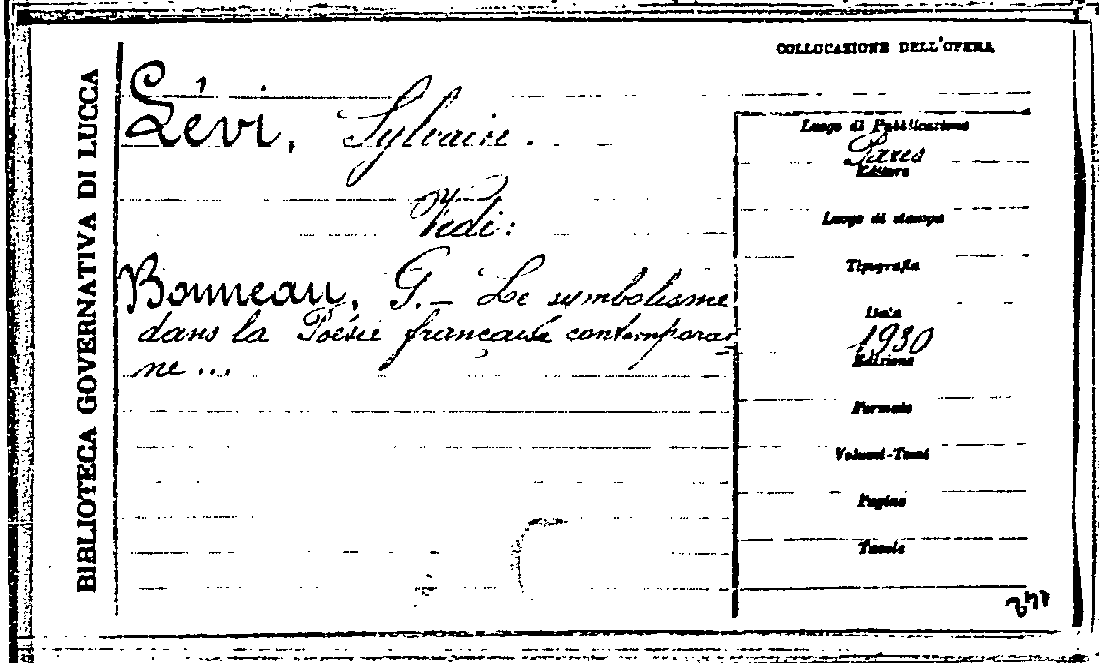 BIBLIOTECA GOVERNATIVA DI LUCCA
COLLOCAZIONE DELL'OPERA
Lévi, Sylvain.
Vedi:
Bonneau, G. - Le symbolisme
dans la Poésie française contemporai
ne...
Luogo di Pubblicazione
Paris
Editore
Luogo di stampa
Tipografia
Data
1930
Edizione
Formato
Volumi-Tomi
Pagine
Tavole